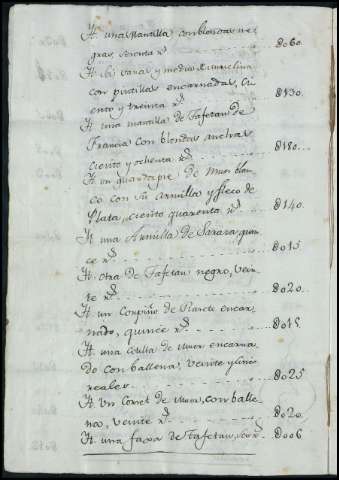 It. una Mantilla con blondas ne-
gras, sesenta r.s .. 8060.
It. seis varas y media de Muselina
con pintillas encarnadas, ci-
ento y treinta r.s .. 8130.
It. una mantilla de Tafetan de
Francia con blondas anchas
ciento y ochenta r.s .. 8180..
It. un guardapie de Muer blan-
co con su Armilla y fleco de
Plata, ciento quarenta r.s .. 8140.
It. una Armilla de Sarara, quin-
ce r.s .. 8015
It. otra de Tafetan negro, vein-
te r.s .. 8020.
It. un Conpiño de Rareti encar-
nado, quince r.s .. 8015.
It. una cotilla de Muer encarna-
do con ballena, veinte y cinco
reales .. 8025
It. un Corset de Muer, con balle-
na, veinte r.s .. 8020.
It. una faxa de Tafetan, seis r.s .. 8006